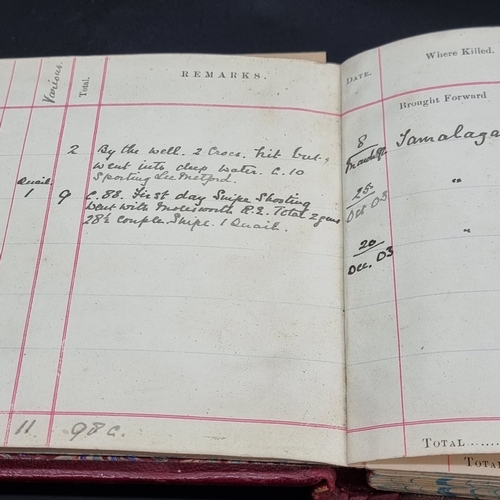 Various.
Total.
REMARKS.
2 By the well. 2 Crocs. hit but
went into deep water. C. 10
Sporting Lee Metford.
Quail
1 9 C. 88. First day Snipe Shooting
Went with Molesworth R.E. Total 2 guns
28½ couple Snipe. 1 Quail.
11 98 C.
DATE.
Where Killed.
Brought Forward
8
25
Oct 03
"
20
Dec. 03
"
TOTAL
TOTAL